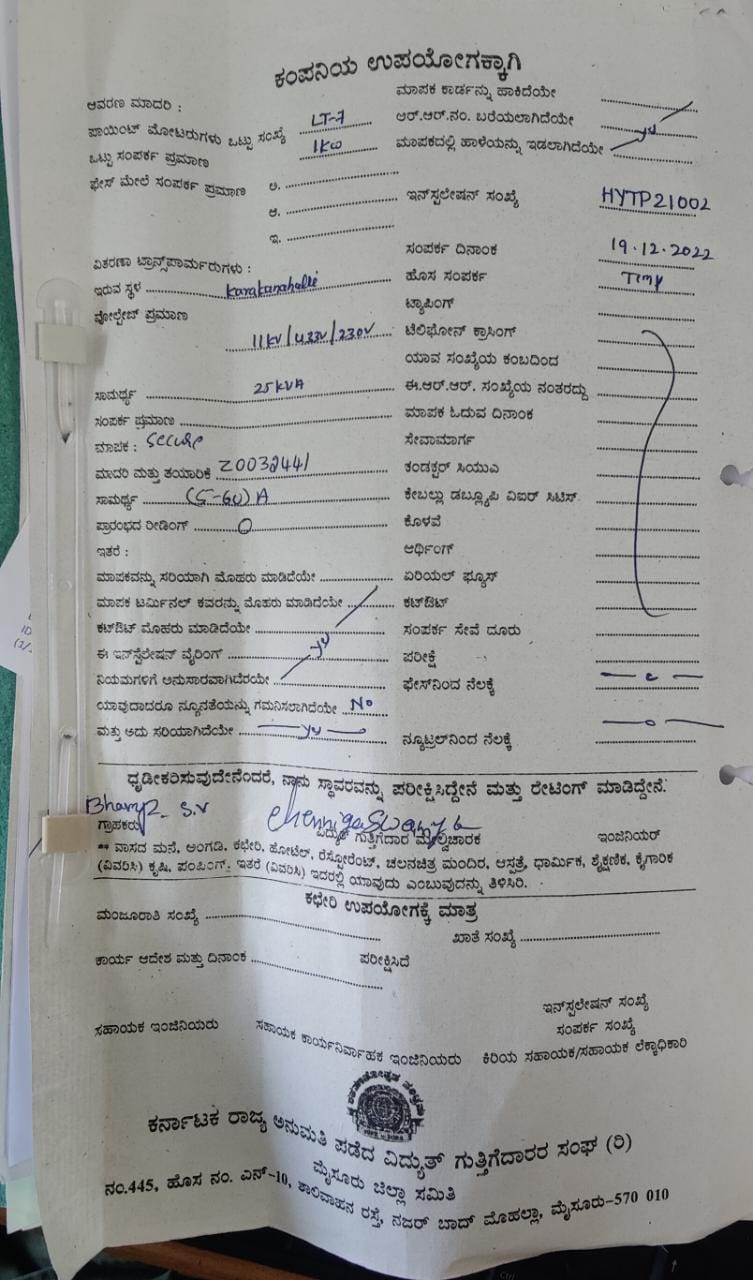 ಕಂಪನಿಯ ಉಪಯೋಗಕ್ಕಾಗಿ
ಆವರಣ ಮಾದರಿ :
ಮಾಪಕ ಕಾರ್ಡನ್ನು ಹಾಕಿದೆಯೇ
ಪಾಯಿಂಟ್ ಮೋಟರುಗಳು ಒಟ್ಟು ಸಂಖ್ಯೆ LT-7
ಆರ್.ಆರ್.ನಂ. ಬರೆಯಲಾಗಿದೆಯೇ
ಒಟ್ಟು ಸಂಪರ್ಕ ಪ್ರಮಾಣ 1KW
ಮಾಪಕದಲ್ಲಿ ಹಾಳೆಯನ್ನು ಇಡಲಾಗಿದೆಯೇ
ಫೇಸ್ ಮೇಲೆ ಸಂಪರ್ಕ ಪ್ರಮಾಣ ಅ.
ಆ.
ಇನ್‌ಸ್ಟಲೇಷನ್ ಸಂಖ್ಯೆ HYTP21002
ಇ.
ಸಂಪರ್ಕ ದಿನಾಂಕ 19.12.2022
ವಿತರಣಾ ಟ್ರಾನ್ಸ್‌ಪಾರ್ಮರುಗಳು :
ಹೊಸ ಸಂಪರ್ಕ
ಇರುವ ಸ್ಥಳ Karakanahalli
ಟ್ಯಾಪಿಂಗ್
ವೋಲ್ಟೇಜ್ ಪ್ರಮಾಣ 11KV/433V/230V
ಟೆಲಿಫೋನ್ ಕ್ರಾಸಿಂಗ್
ಯಾವ ಸಂಖ್ಯೆಯ ಕಂಬದಿಂದ
ಸಾಮರ್ಥ್ಯ 25KVA
ಈ.ಆರ್.ಆರ್. ಸಂಖ್ಯೆಯ ನಂತರದ್ದು
ಸಂಪರ್ಕ ಪ್ರಮಾಣ
ಮಾಪಕ ಓದುವ ದಿನಾಂಕ
ಮಾಪಕ : Secure
ಸೇವಾಮಾರ್ಗ
ಮಾದರಿ ಮತ್ತು ತಯಾರಿಕೆ
ಕಂಡಕ್ಟರ್ ಸಿಯುಎ
ಸಾಮರ್ಥ್ಯ (5-60)A
ಕೇಬಲ್ಲು ಡಬ್ಲ್ಯೂಪಿ ವಿಐರ್ ಸಿಟಿಸ್
ಪ್ರಾರಂಭದ ರೀಡಿಂಗ್ 0
ಕೊಳವೆ
ಇತರೆ :
ಆರ್ಥಿಂಗ್
ಮಾಪಕವನ್ನು ಸರಿಯಾಗಿ ಮೊಹರು ಮಾಡಿದೆಯೇ
ಏರಿಯಲ್ ಫ್ಯೂಸ್
ಮಾಪಕ ಟರ್ಮಿನಲ್ ಕವರನ್ನು ಮೊಹರು ಮಾಡಿದೆಯೇ
ಕಟ್‌ಔಟ್
ಕಟ್‌ಔಟ್ ಮೊಹರು ಮಾಡಿದೆಯೇ
ಸಂಪರ್ಕ ಸೇವೆ ದೂರು
ಈ ಇನ್‌ಸ್ಟಲೇಷನ್ ವೈರಿಂಗ್
ಪರೀಕ್ಷೆ
ನಿಯಮಗಳಿಗೆ ಅನುಸಾರವಾಗಿದೆರಯೇ
ಫೇಸ್‌ನಿಂದ ನೆಲಕ್ಕೆ
ಯಾವುದಾದರೂ ನ್ಯೂನತೆಯನ್ನು ಗಮನಿಸಲಾಗಿದೆಯೇ No
ಮತ್ತು ಅದು ಸರಿಯಾಗಿದೆಯೇ
ನ್ಯೂಟ್ರಲ್‌ನಿಂದ ನೆಲಕ್ಕೆ
ಧೃಡೀಕರಿಸುವುದೇನೆಂದರೆ, ನಾನು ಸ್ಥಾವರವನ್ನು ಪರೀಕ್ಷಿಸಿದ್ದೇನೆ ಮತ್ತು ರೇಟಿಂಗ್ ಮಾಡಿದ್ದೇನೆ.
ಗ್ರಾಹಕರು ವಿದ್ಯುತ್ ಗುತ್ತಿಗೆದಾರ ಮೇಲ್ವಿಚಾರಕ ಇಂಜಿನಿಯರ್
** ವಾಸದ ಮನೆ, ಅಂಗಡಿ, ಕಛೇರಿ, ಹೋಟೆಲ್, ರೆಸ್ಟೋರೆಂಟ್, ಚಲನಚಿತ್ರ ಮಂದಿರ, ಆಸ್ಪತ್ರೆ, ಧಾರ್ಮಿಕ, ಶೈಕ್ಷಣಿಕ, ಕೈಗಾರಿಕ
(ವಿವರಿಸಿ) ಕೃಷಿ, ಪಂಪಿಂಗ್, ಇತರೆ (ವಿವರಿಸಿ) ಇದರಲ್ಲಿ ಯಾವುದು ಎಂಬುವುದನ್ನು ತಿಳಿಸಿರಿ.
ಕಛೇರಿ ಉಪಯೋಗಕ್ಕೆ ಮಾತ್ರ
ಮಂಜೂರಾತಿ ಸಂಖ್ಯೆ
ಖಾತೆ ಸಂಖ್ಯೆ
ಕಾರ್ಯ ಆದೇಶ ಮತ್ತು ದಿನಾಂಕ
ಪರೀಕ್ಷಿಸಿದೆ
ಇನ್‌ಸ್ಟಲೇಷನ್ ಸಂಖ್ಯೆ
ಸಂಪರ್ಕ ಸಂಖ್ಯೆ
ಸಹಾಯಕ ಇಂಜಿನಿಯರು ಸಹಾಯಕ ಕಾರ್ಯನಿರ್ವಾಹಕ ಇಂಜಿನಿಯರು ಕಿರಿಯ ಸಹಾಯಕ/ಸಹಾಯಕ ಲೆಕ್ಕಾಧಿಕಾರಿ
ಕರ್ನಾಟಕ ರಾಜ್ಯ ಅನುಮತಿ ಪಡೆದ ವಿದ್ಯುತ್ ಗುತ್ತಿಗೆದಾರರ ಸಂಘ (ರಿ)
ಮೈಸೂರು ಜಿಲ್ಲಾ ಸಮಿತಿ
ನಂ.445, ಹೊಸ ನಂ. ಎನ್-10, ಶಾಲಿವಾಹನ ರಸ್ತೆ, ನಜರ್ ಬಾದ್ ಮೊಹಲ್ಲಾ, ಮೈಸೂರು-570 010